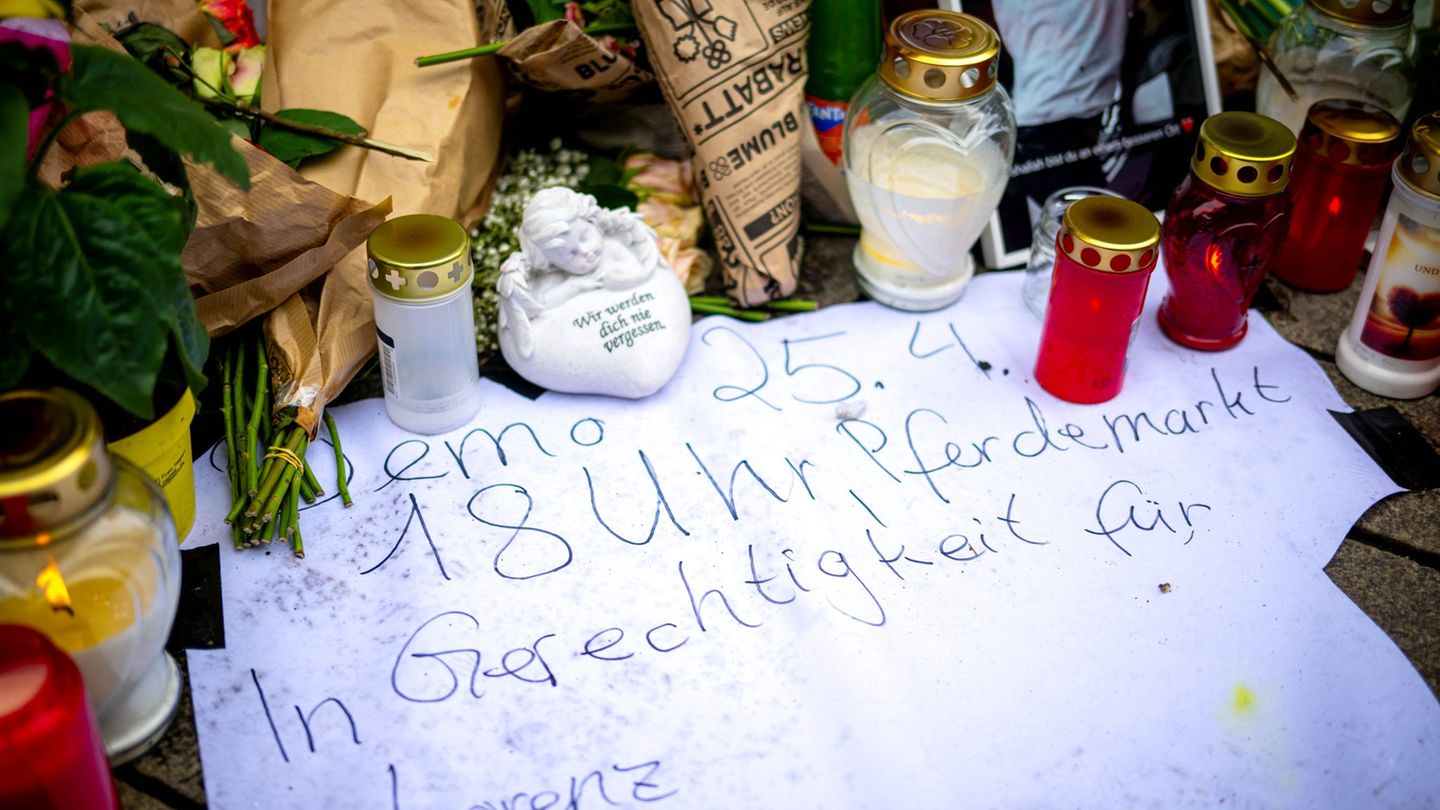 RABATT*
BLUME
Wir werden
dich nie
vergessen.
du an einem besseren Ort
UND
Demo 25.4.
18 Uhr, Pferdemarkt
Gerechtigkeit für
In
Lorenz